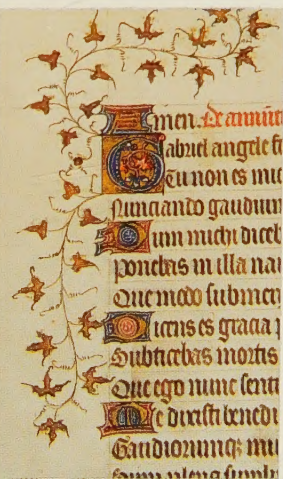 Amen. De annuncia
Gabriel angele fo
Tu non es mic
Nunciando gaudium
Dum michi diceb
ponebas in illa nau
Que modo submer
Dicens es gracia p
Subticebas mortis
Que ego nunc senti
Me dixisti benedi
Gaudiorumque mu